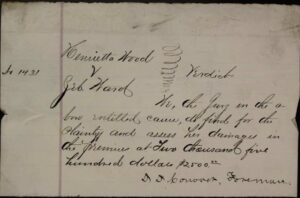 Henrietta Wood
No 1431 v Verdict
Zeb Ward
We, the Jury in the a
bove entitled cause, do find for the
Plaintiff and assess her damages in
the premises at Two thousand five
hundred dollars $2500.00
Foreman.